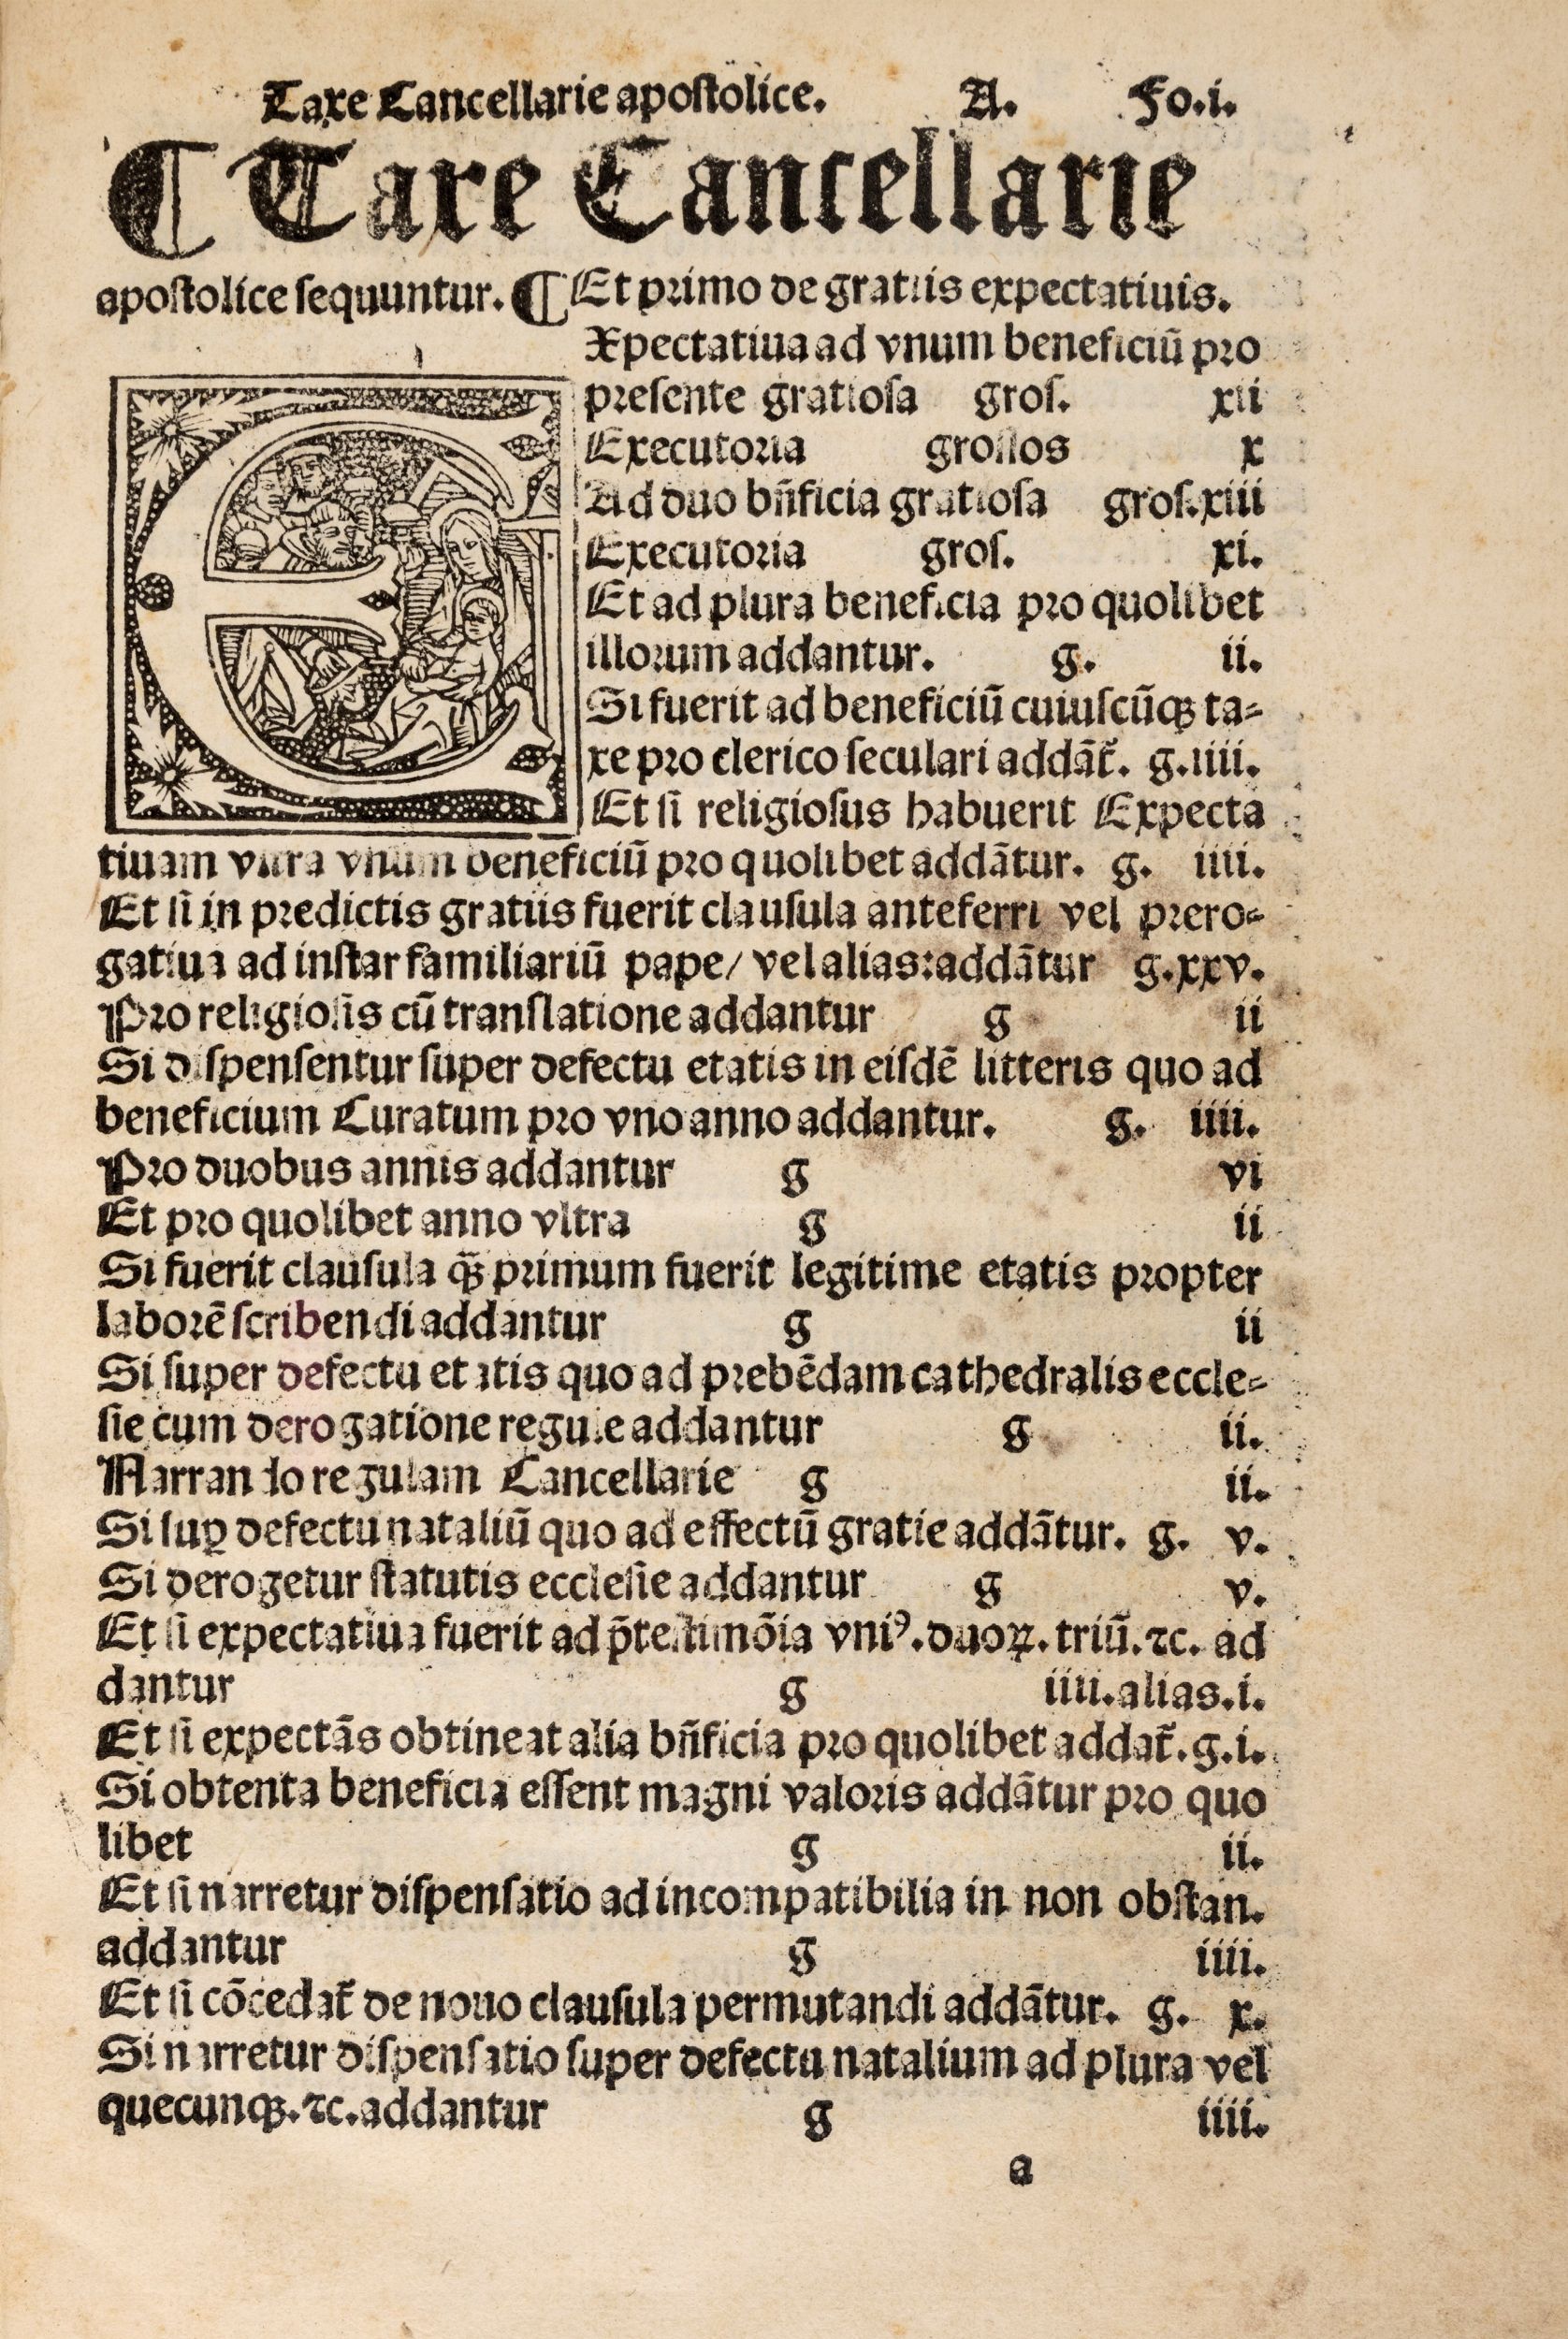 Taxe Cancellarie apostolice. A. Fo.i.
¶ Taxe Cancellarie
apostolice sequuntur. ¶ Et primo de gratiis expectatiuis.
EXpectatiua ad vnum beneficiū pro
presente gratiosa gros. xii
Executoria grossos x
Ad duo bn̄ficia gratiosa gros.xiii
Executoria gros. xi.
Et ad plura beneficia pro quolibet
illorum addantur. g. ii.
Si fuerit ad beneficiū cuiuscūqꝫ ta-
xe pro clerico seculari addāt̄. g.iiii.
Et si religiosus habuerit Expecta
tiuam vltra vnum beneficiū pro quolibet addātur. g. iiii.
Et si in predictis gratiis fuerit clausula anteferri vel prero-
gatiua ad instar familiariū pape/ vel alias:addātur g.xxv.
Pro religiosis cū translatione addantur g ii
Si dispensentur super defectu etatis in eisdē litteris quo ad
beneficium Curatum pro vno anno addantur. g. iiii.
Pro duobus annis addantur g vi
Et pro quolibet anno vltra g ii
Si fuerit clausula qꝫ̄ primum fuerit legitime etatis propter
laborē scribendi addantur g ii
Si super defectu etatis quo ad prebēdam cathedralis eccle-
sie cum derogatione regule addantur g ii.
Narrando regulam Cancellarie g ii.
Si suꝑ defectu nataliū quo ad effectū gratie addātur. g. v.
Si derogetur statutis ecclesie addantur g v.
Et si expectatiua fuerit ad p̄testimōia vniꝰ.duoꝝ.triū.⁊c. ad
dantur g iiii.alias.i.
Et si expectās obtineat alia bn̄ficia pro quolibet addat̄.g.i.
Si obtenta beneficia essent magni valoris addātur pro quo
libet g ii.
Et si narretur dispensatio ad incompatibilia in non obstan.
addantur g iiii.
Et si cōcedat̄ de nouo clausula permutandi addātur. g. x.
Si narretur dispensatio super defectu natalium ad plura vel
quecunqꝫ.⁊c.addantur g iiii.
a